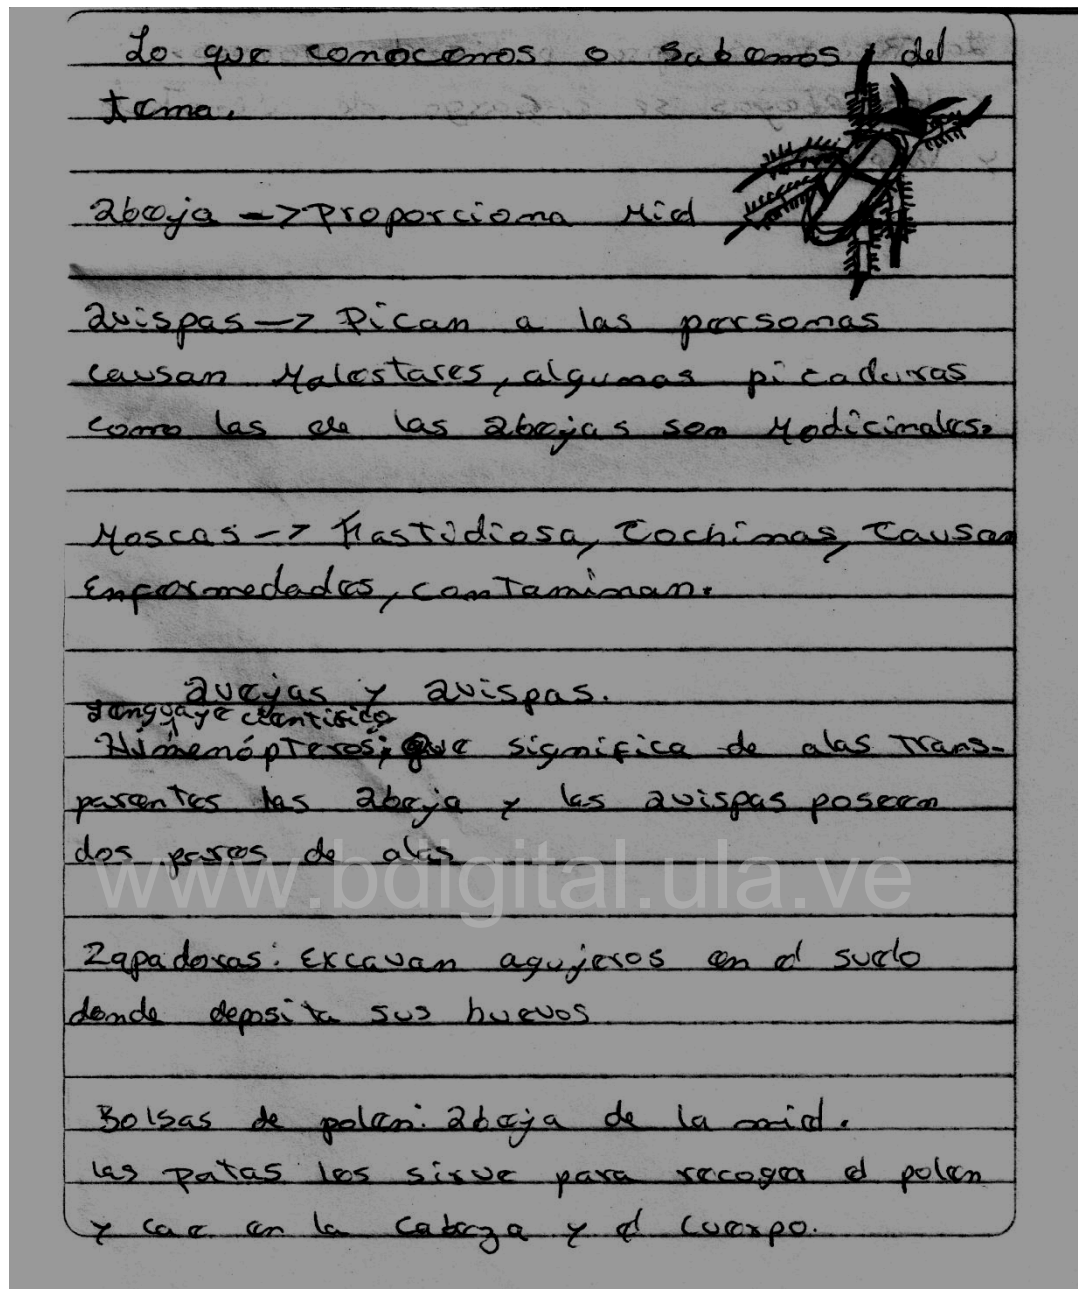 Lo que conocemos o sabemos del
tema.
abeja -> Proporciona Miel
avispas -> Pican a las personas
causan Malestares, algunas picaduras
como las de las abejas son Medicinales.
Moscas -> Fastidiosa, Cochinas, Causan
Enfermedades, contaminan.
avejas y avispas.
Lenguaye cientifico
Himenópteros; que significa de alas Trans-
parentes las abeja y las avispas poseen
dos pares de alas
www.bdigital.ula.ve
Zapadoras: Excavan agujeros en el suelo
donde deposita sus huevos
Bolsas de polen: abeja de la miel.
las patas les sirve para recoger el polen
y cae en la cabeza y el cuerpo.